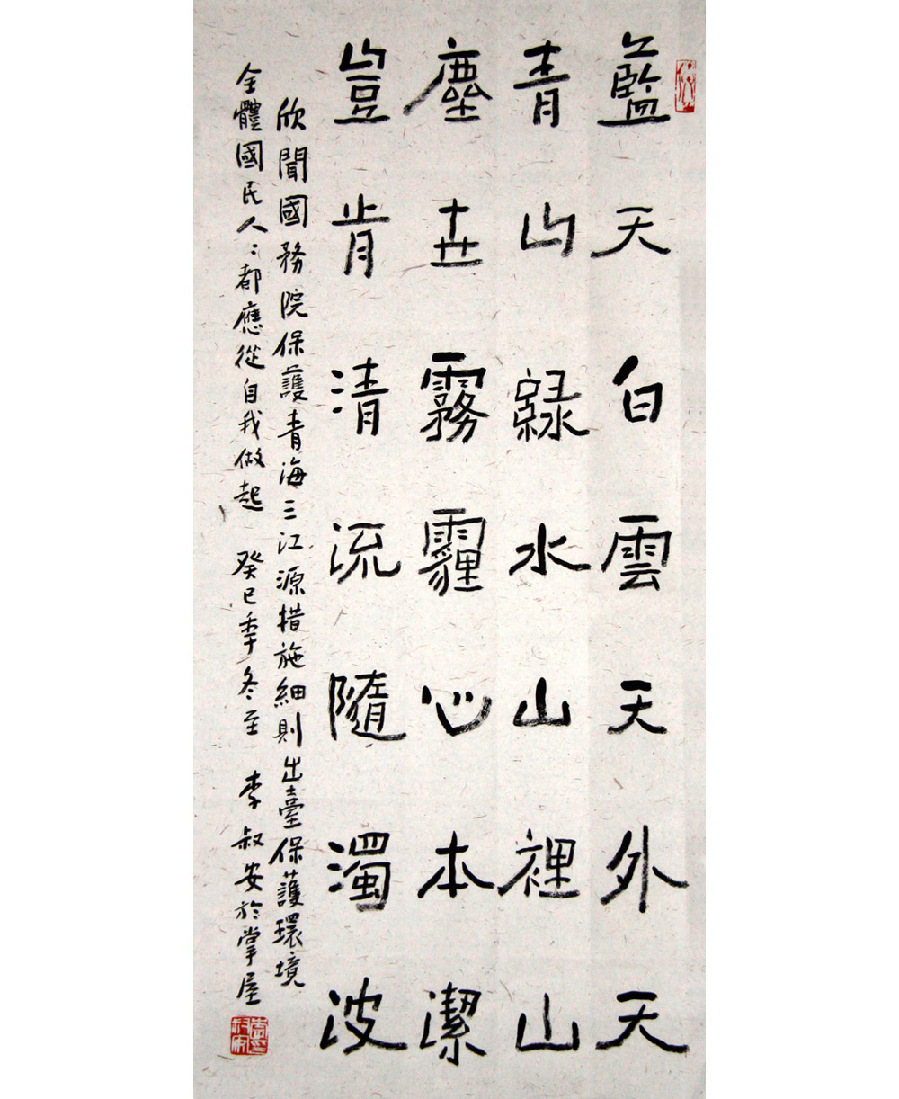 藍天白雲天外天
青山綠水山裡山
塵世霧霾心本潔
豈肯清流隨濁波
欣聞國務院保護青海三江源措施細則出臺保護環境
全體國民人人都應從自我做起 癸巳季冬至 李叔安於掌屋